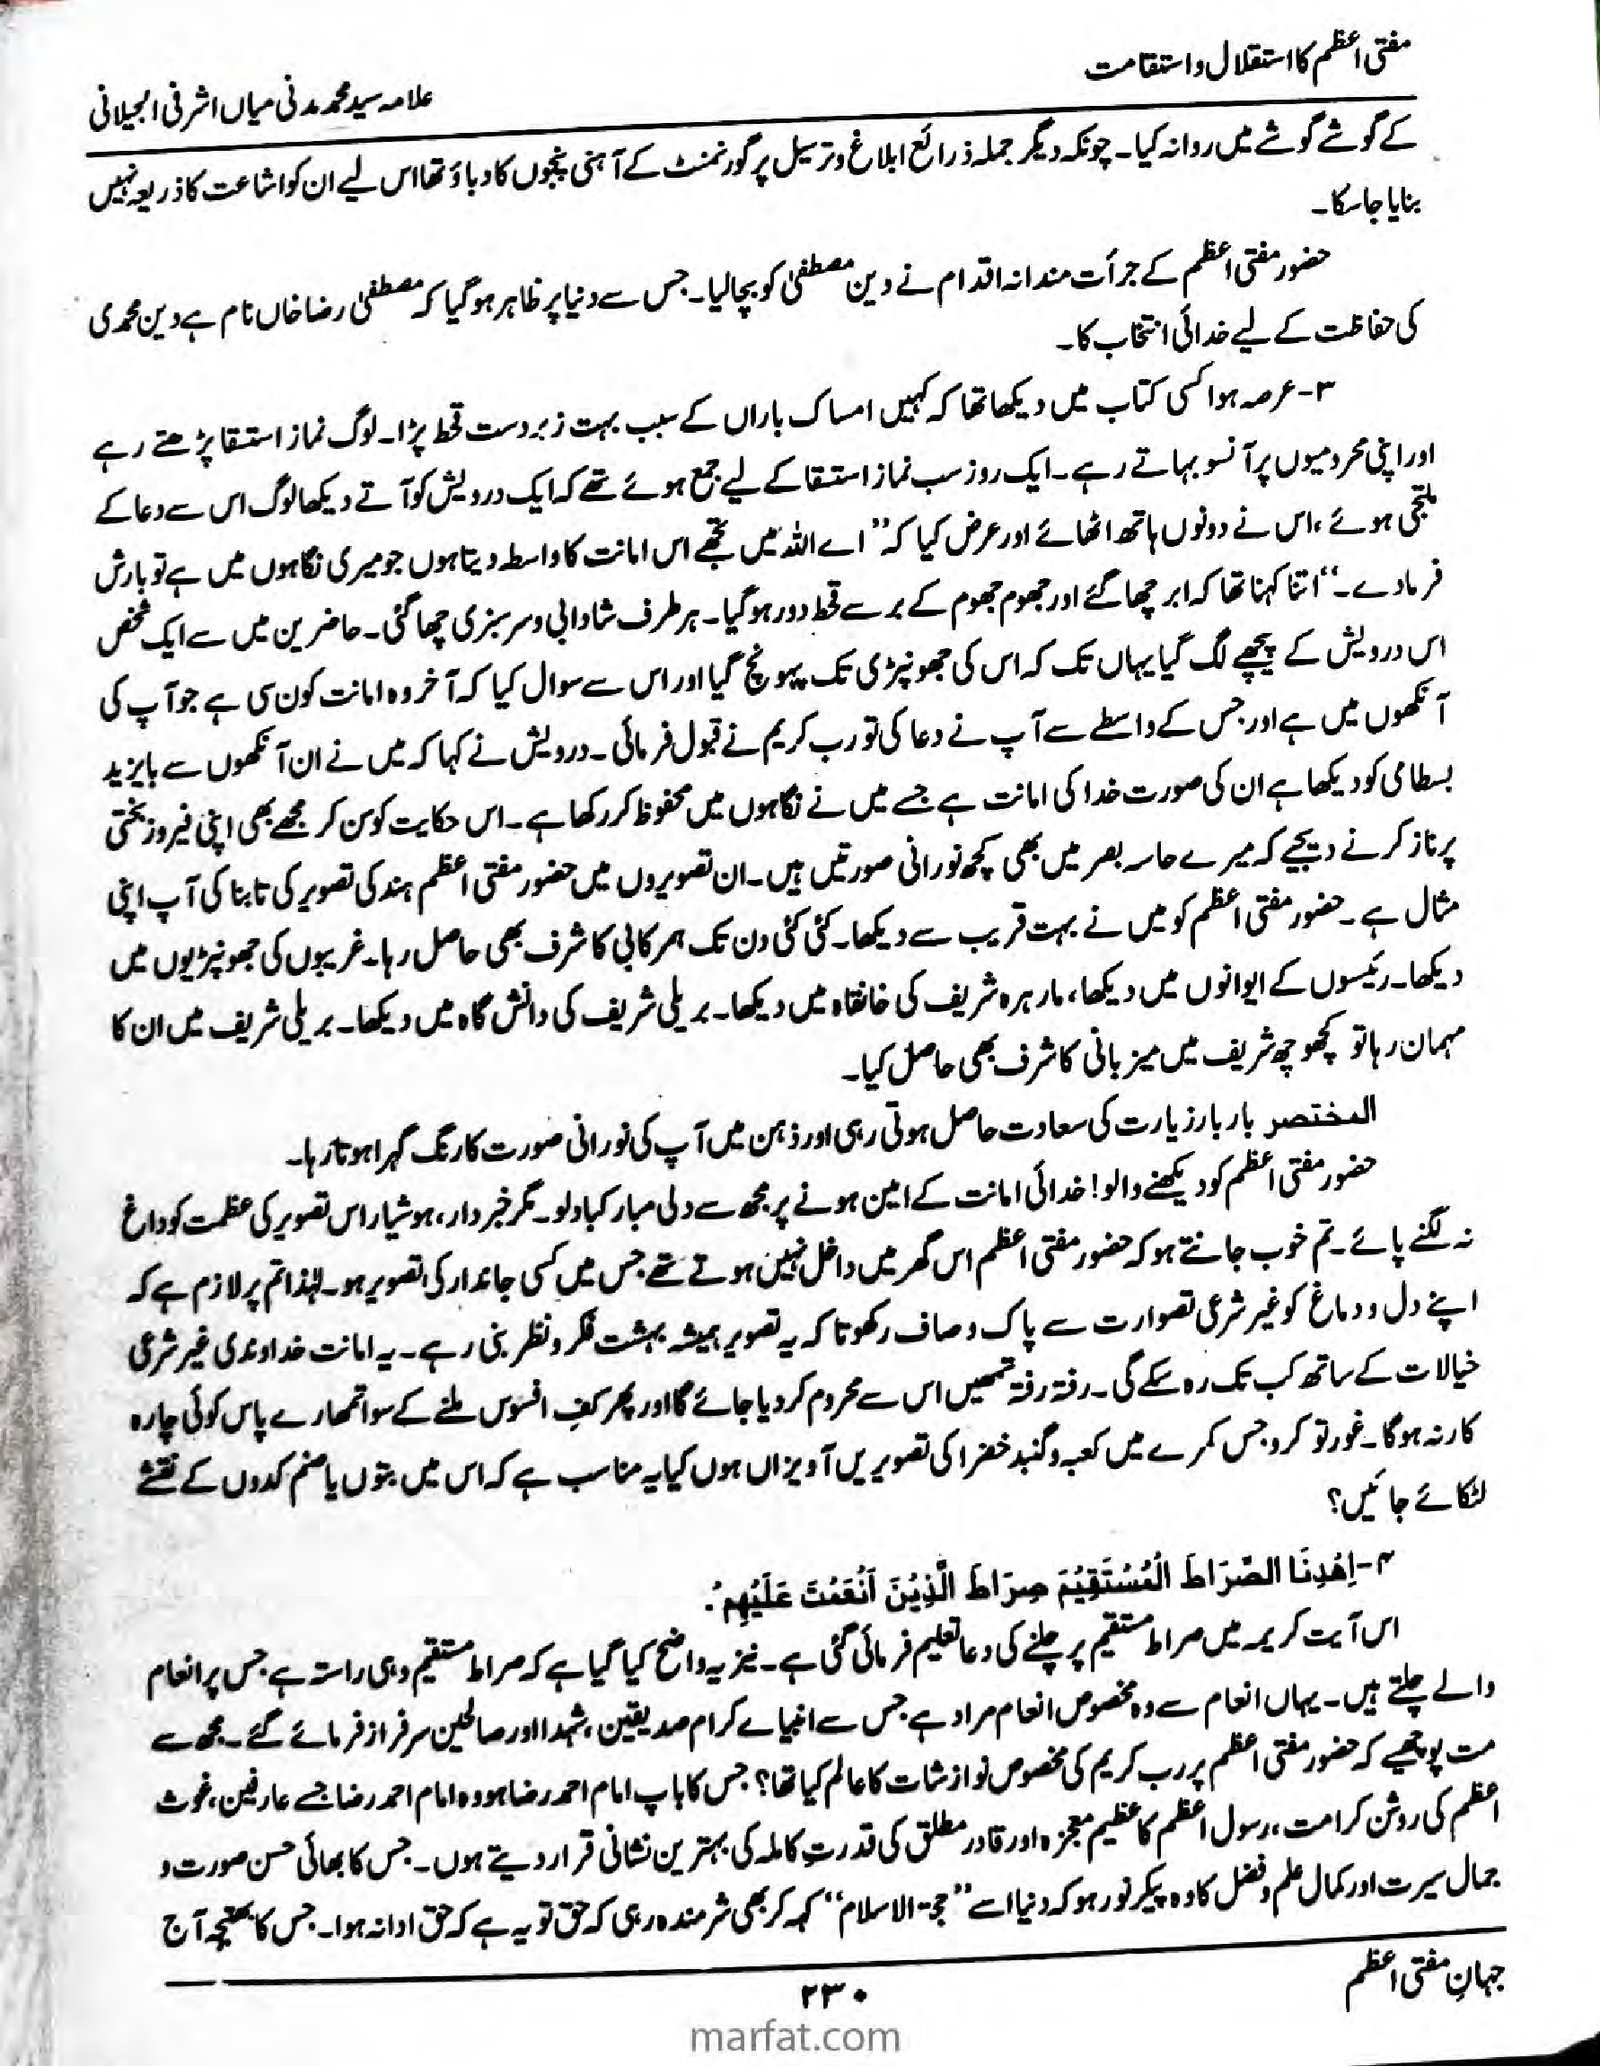 مفتی اعظم کا استقلال و استقامت
علامہ سید محمد مدنی میاں اشرفی الجیلانی
کے گوشے گوشے میں روانہ کیا۔ چونکہ دیگر جملہ ذرائع ابلاغ و ترسیل پر گورنمنٹ کے آہنی پنجوں کا دباؤ تھا اس لیے ان کو اشاعت کا ذریعہ نہیں
بنایا جا سکا۔
حضور مفتی اعظم کے جرأت مندانہ اقدام نے دین مصطفیٰ کو بچا لیا۔ جس سے دنیا پر ظاہر ہو گیا کہ مصطفیٰ رضا خاں نام ہے دین محمدی
کی حفاظت کے لیے خدائی انتخاب کا۔
۳- عرصہ ہوا کسی کتاب میں دیکھا تھا کہ کہیں امساک باراں کے سبب بہت زبردست قحط پڑا۔ لوگ نماز استسقا پڑھتے رہے
اور اپنی محرومیوں پر آنسو بہاتے رہے۔ ایک روز سب نماز استسقا کے لیے جمع ہوئے تھے کہ ایک درویش کو آتے دیکھا لوگ اس سے دعا کے
ملتجی ہوئے، اس نے دونوں ہاتھ اٹھائے اور عرض کیا کہ ”اے اللہ میں تجھے اس امانت کا واسطہ دیتا ہوں جو میری نگاہوں میں ہے تو بارش
فرما دے۔“ اتنا کہنا تھا کہ ابر چھا گئے اور جھوم جھوم کے برسے قحط دور ہو گیا۔ ہر طرف شادابی و سرسبزی چھا گئی۔ حاضرین میں سے ایک شخص
اس درویش کے پیچھے لگ گیا یہاں تک کہ اس کی جھونپڑی تک پہونچ گیا اور اس سے سوال کیا کہ آخر وہ امانت کون سی ہے جو آپ کی
آنکھوں میں ہے اور جس کے واسطے سے آپ نے دعا کی تو رب کریم نے قبول فرمائی۔ درویش نے کہا کہ میں نے ان آنکھوں سے بایزید
بسطامی کو دیکھا ہے ان کی صورت خدا کی امانت ہے جسے میں نے نگاہوں میں محفوظ کر رکھا ہے۔ اس حکایت کو سن کر مجھے بھی اپنی فیروز بختی
پر ناز کرنے دیجیے کہ میرے حاسہ بصر میں بھی کچھ نورانی صورتیں ہیں۔ ان تصویروں میں حضور مفتی اعظم ہند کی تصویر کی تابناکی آپ اپنی
مثال ہے۔ حضور مفتی اعظم کو میں نے بہت قریب سے دیکھا۔ کئی کئی دن تک ہمرکابی کا شرف بھی حاصل رہا۔ غریبوں کی جھونپڑیوں میں
دیکھا۔ رئیسوں کے ایوانوں میں دیکھا، مارہرہ شریف کی خانقاہ میں دیکھا۔ بریلی شریف کی دانش گاہ میں دیکھا۔ بریلی شریف میں ان کا
مہمان رہا تو کچھوچھہ شریف میں میزبانی کا شرف بھی حاصل کیا۔
المختصر بار بار زیارت کی سعادت حاصل ہوتی رہی اور ذہن میں آپ کی نورانی صورت کا رنگ گہرا ہوتا رہا۔
حضور مفتی اعظم کو دیکھنے والو! خدائی امانت کے امین ہونے پر مجھ سے دلی مبارکباد لو۔ مگر خبردار، ہوشیار اس تصویر کی عظمت کو داغ
نہ لگنے پائے۔ تم خوب جانتے ہو کہ حضور مفتی اعظم اس گھر میں داخل نہیں ہوتے تھے جس میں کسی جاندار کی تصویر ہو۔ لہٰذا تم پر لازم ہے کہ
اپنے دل و دماغ کو غیر شرعی تصوارت سے پاک و صاف رکھو تا کہ یہ تصویر ہمیشہ بہشت فکر و نظر بنی رہے۔ یہ امانت خداوندی غیر شرعی
خیالات کے ساتھ کب تک رہ سکے گی۔ رفتہ رفتہ تمھیں اس سے محروم کر دیا جائے گا اور پھر کف افسوس ملنے کے سوا تمھارے پاس کوئی چارہ
کار نہ ہوگا۔ غور تو کرو جس کمرے میں کعبہ و گنبد خضرا کی تصویریں آویزاں ہوں کیا یہ مناسب ہے کہ اس میں بتوں یا صنم کدوں کے نقشے
لٹکائے جائیں؟
۴- اِهْدِنَا الصِّرَاطَ الْمُسْتَقِيْمَ صِرَاطَ الَّذِيْنَ اَنْعَمْتَ عَلَيْهِمْ.
اس آیت کریمہ میں صراط مستقیم پر چلنے کی دعا تعلیم فرمائی گئی ہے۔ نیز یہ واضح کیا گیا ہے کہ صراط مستقیم وہی راستہ ہے جس پر انعام
والے چلتے ہیں۔ یہاں انعام سے وہ مخصوص انعام مراد ہے جس سے انبیاے کرام صدیقین، شہدا اور صالحین سرفراز فرمائے گئے۔ مجھ سے
مت پوچھیے کہ حضور مفتی اعظم پر رب کریم کی مخصوص نوازشات کا عالم کیا تھا؟ جس کا باپ امام احمد رضا ہو وہ امام احمد رضا جسے عارفین، غوث
اعظم کی روشن کرامت، رسول اعظم کا عظیم معجزہ اور قادر مطلق کی قدرت کاملہ کی بہترین نشانی قرار دیتے ہوں۔ جس کا بھائی حسن صورت و
جمال سیرت اور کمال علم و فضل کا وہ پیکر نور ہو کہ دنیا اسے ”حجۃ الاسلام“ کہہ کر بھی شرمندہ رہی کہ حق تو یہ ہے کہ حق ادا نہ ہوا۔ جس کا بھتیجہ آج
جہانِ مفتی اعظم
۲۳۰
marfat.com